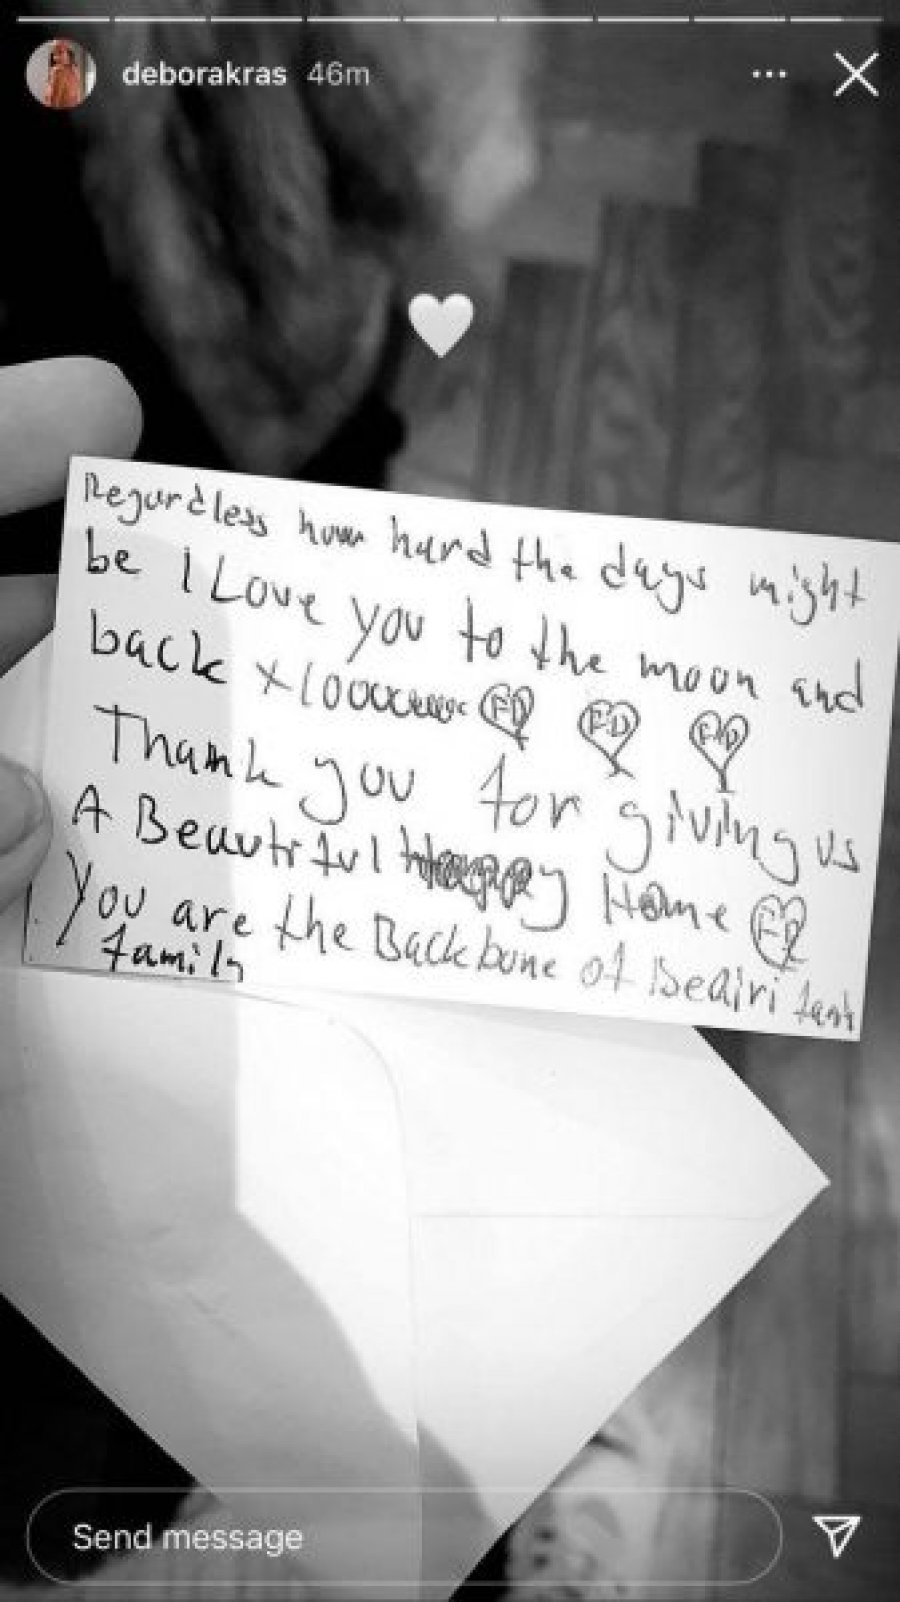 deborakras 46m
Regardless how hard the days might
be I Love you to the moon and
back x10000000 FD FD FD
Thank you for giving us
A Beautiful Home FD
You are the Backbone of Bediri
family
Send message